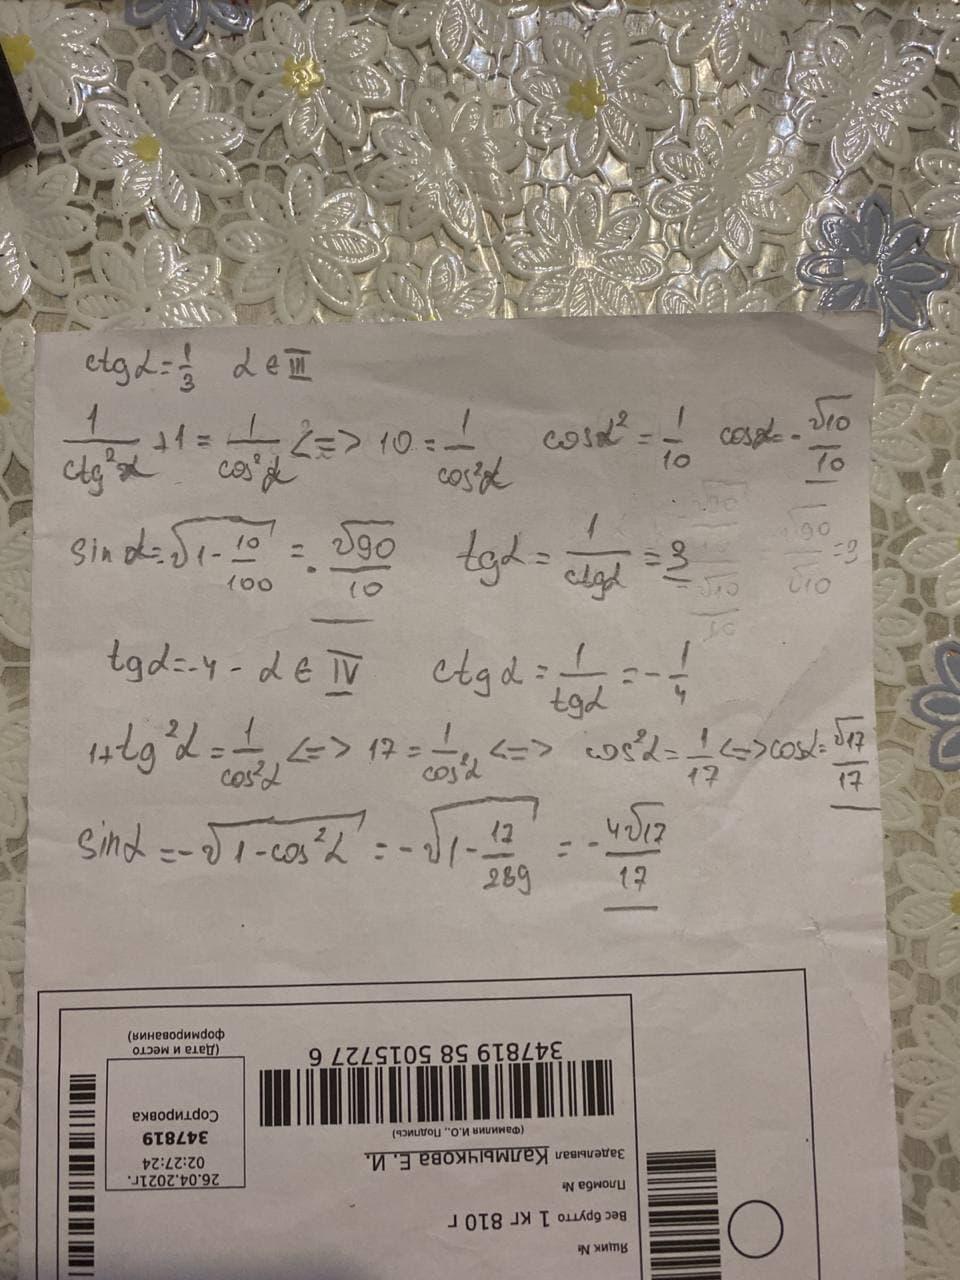 ctg α = 1/3 α ∈ III
1/ctg²α + 1 = 1/cos²α <=> 10 = 1/cos²α cos α² = 1/10 cos α = -√10/10
sin α = √(1 - 10/100) = -√90/10 tg α = 1/ctg α = 3
tg α = -4 - α ∈ IV ctg α = 1/tg α = -1/4
1 + tg²α = 1/cos²α <=> 17 = 1/cos²α <=> cos²α = 1/17 <=> cos α = √17/17
sin α = -√(1 - cos²α) = -√(1 - 17/289) = -4√17/17
Ящик №
Вес брутто 1 кг 810 г
Пломба №
Заделывал Калмычкова Е. И.
(Фамилия И.О., Подпись)
347819 58 5015727 6
26.04.2021г.
02:27:24
347819
Сортировка
(Дата и место
формирования)